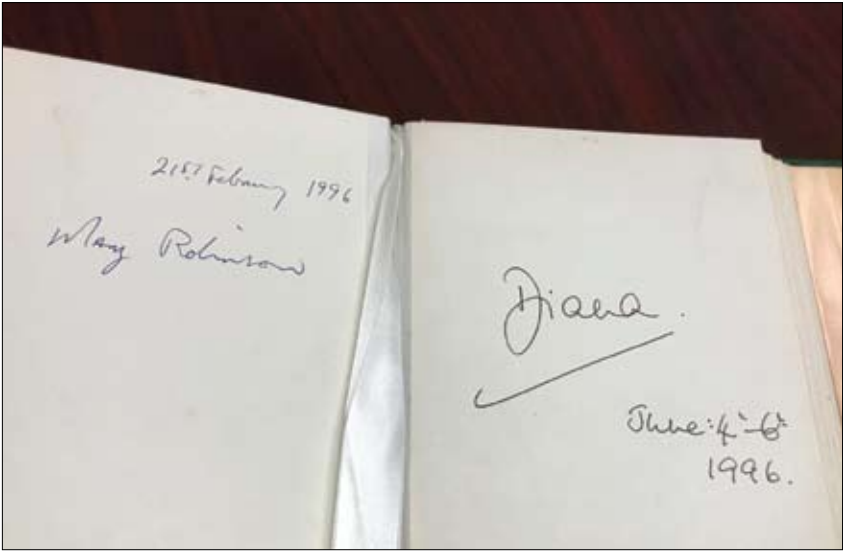 21ST February 1996
Mary Robinson
Diana.
June: 4th-6th
1996.